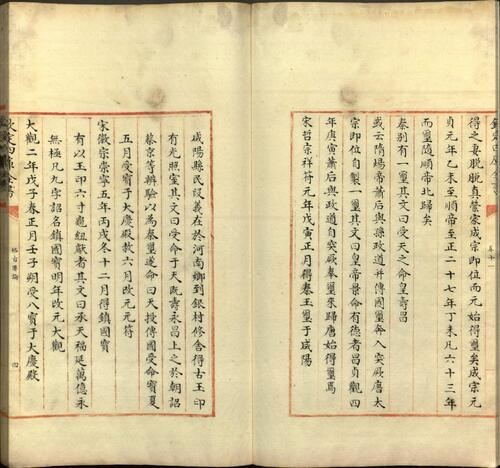 得之妻脫脫真鬻家成宗即位而元始得璽矣成宗元
貞元年乙未至順帝至正二十七年丁未凡六十三年
而璽隨順帝北歸矣
秦別有一璽其文曰受天之命皇壽昌
或云隋埸帝蕭后與孫政道并傳國璽奔入突厥唐太
宗即位自製一璽其文曰皇帝景命有德者昌貞觀四
年庚寅蕭后與政道自突厥奉璽來歸唐始得璽焉
宋哲宗祥符元年戊寅正月得秦玉璽于咸陽
咸陽縣民叚義在於河南鄉到銀村修舎得古玉印
有光照室其文曰受命于天既壽永昌上之於朝詔
蔡京等辨驗以為秦璽遂命曰天授傳國受命寳夏
五月受寳于大慶殿赦六月改元元符
宋徽宗崇寧五年丙戌冬十二月得鎮國寳
有以玉印六寸龜紐獻者其文曰承天福延萬億永
無極凡九字詔名鎮國寳明年改元大觀
大觀二年戊子春正月壬子朔受八寳于大慶殿
欽定四庫全書
四